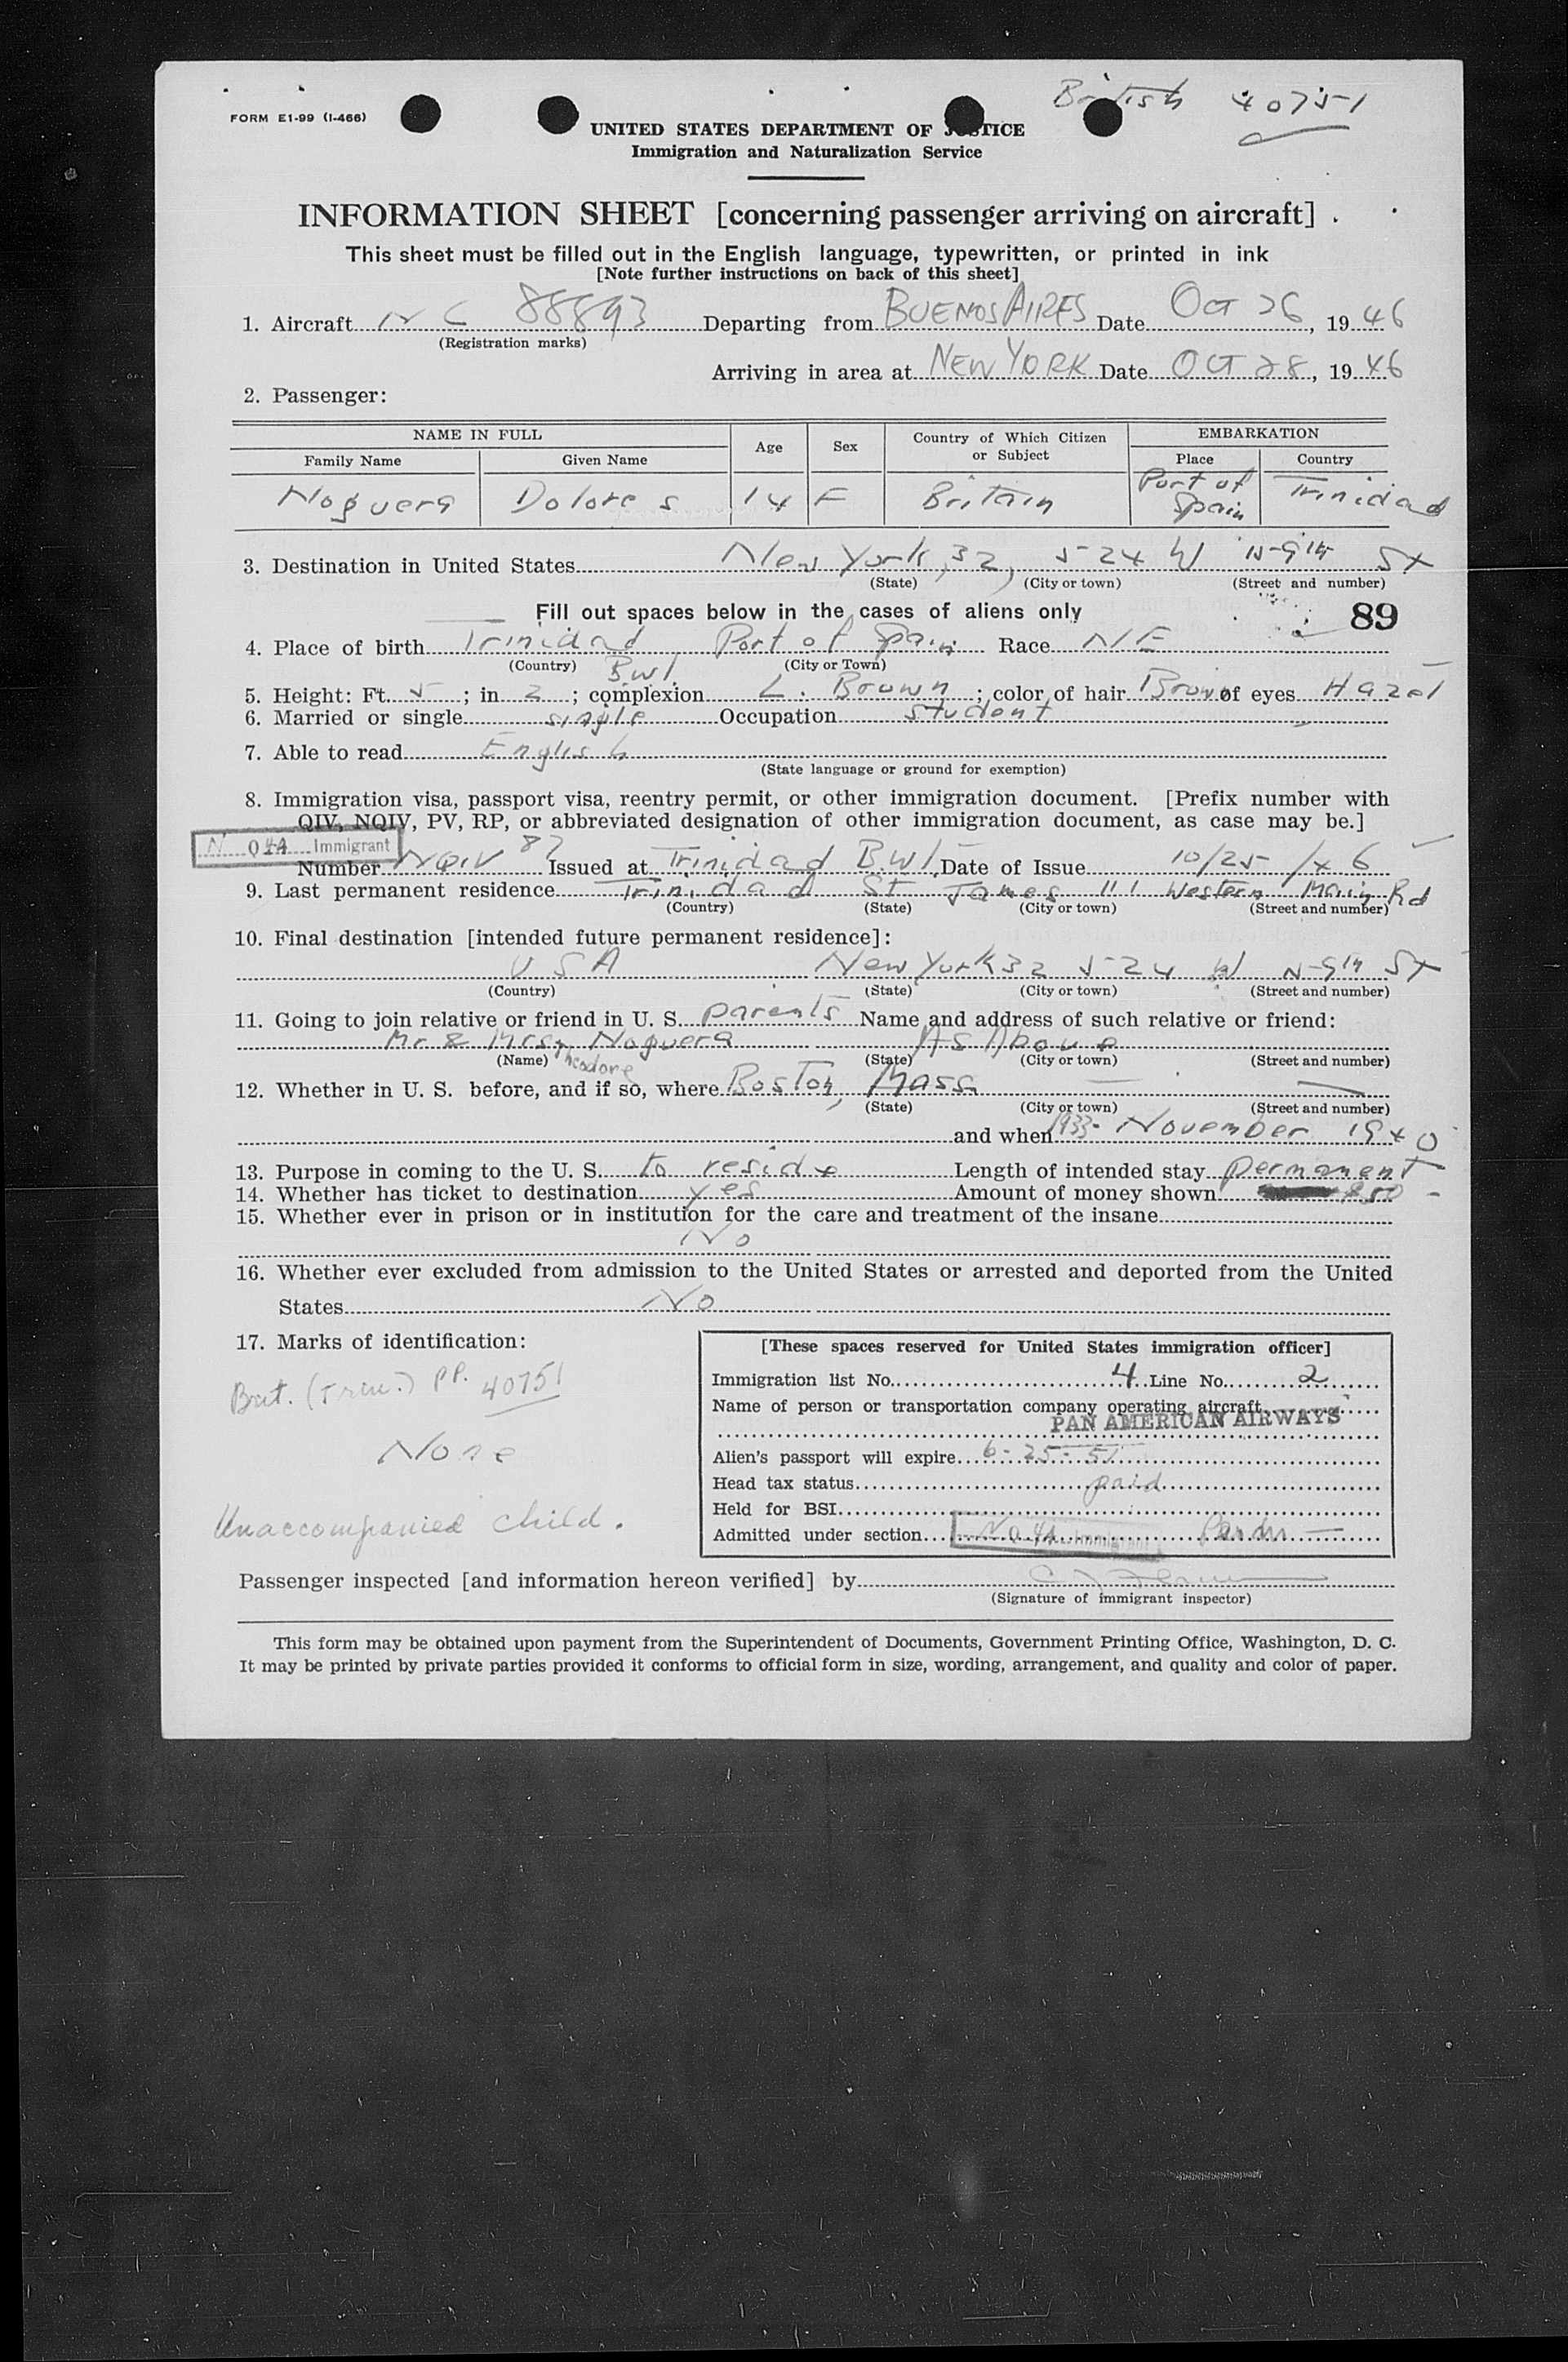 British 40751
FORM E1-99 (I-466)
UNITED STATES DEPARTMENT OF JUSTICE
Immigration and Naturalization Service
INFORMATION SHEET [concerning passenger arriving on aircraft]
This sheet must be filled out in the English language, typewritten, or printed in ink
[Note further instructions on back of this sheet]
1. Aircraft NC 88893 Departing from BUENOS AIRES Date OCT 26, 1946
(Registration marks)
Arriving in area at NEW YORK Date OCT 28, 1946
2. Passenger:
NAME IN FULL Age Sex Country of Which Citizen or Subject EMBARKATION
Family Name Given Name Place Country
Noguera Dolores 14 F Britain Port of Spain Trinidad
3. Destination in United States New York, 32, 524 W 159th St
(State) (City or town) (Street and number)
Fill out spaces below in the cases of aliens only 89
4. Place of birth Trinidad Port of Spain Race
(Country) BWI (City or Town)
5. Height: Ft. 5; in 2; complexion L. Brown; color of hair Brown of eyes Hazel
6. Married or single single Occupation student
7. Able to read English
(State language or ground for exemption)
8. Immigration visa, passport visa, reentry permit, or other immigration document. [Prefix number with
QIV, NQIV, PV, RP, or abbreviated designation of other immigration document, as case may be.]
Immigrant
Number NQIV 87 Issued at Trinidad BWI Date of Issue 10/25/46
9. Last permanent residence Trinidad St James 111 Western Main Rd
(Country) (State) (City or town) (Street and number)
10. Final destination [intended future permanent residence]:
USA New York 32 524 W 159th St
(Country) (State) (City or town) (Street and number)
11. Going to join relative or friend in U. S. parents Name and address of such relative or friend:
Mr & Mrs Theodore Noguera As Above
(Name) (State) (City or town) (Street and number)
12. Whether in U. S. before, and if so, where Boston, Mass
(State) (City or town) (Street and number)
and when 1933- November 1940
13. Purpose in coming to the U. S. to reside Length of intended stay permanent
14. Whether has ticket to destination yes Amount of money shown $50
15. Whether ever in prison or in institution for the care and treatment of the insane
No
16. Whether ever excluded from admission to the United States or arrested and deported from the United
States No
17. Marks of identification:
Brit. (Trin.) PP. 40751
None
Unaccompanied child.
[These spaces reserved for United States immigration officer]
Immigration list No. 4 Line No. 2
Name of person or transportation company operating aircraft
PAN AMERICAN AIRWAYS
Alien's passport will expire 6-25-51
Head tax status paid
Held for BSI
Admitted under section
Passenger inspected [and information hereon verified] by
(Signature of immigrant inspector)
This form may be obtained upon payment from the Superintendent of Documents, Government Printing Office, Washington, D. C.
It may be printed by private parties provided it conforms to official form in size, wording, arrangement, and quality and color of paper.